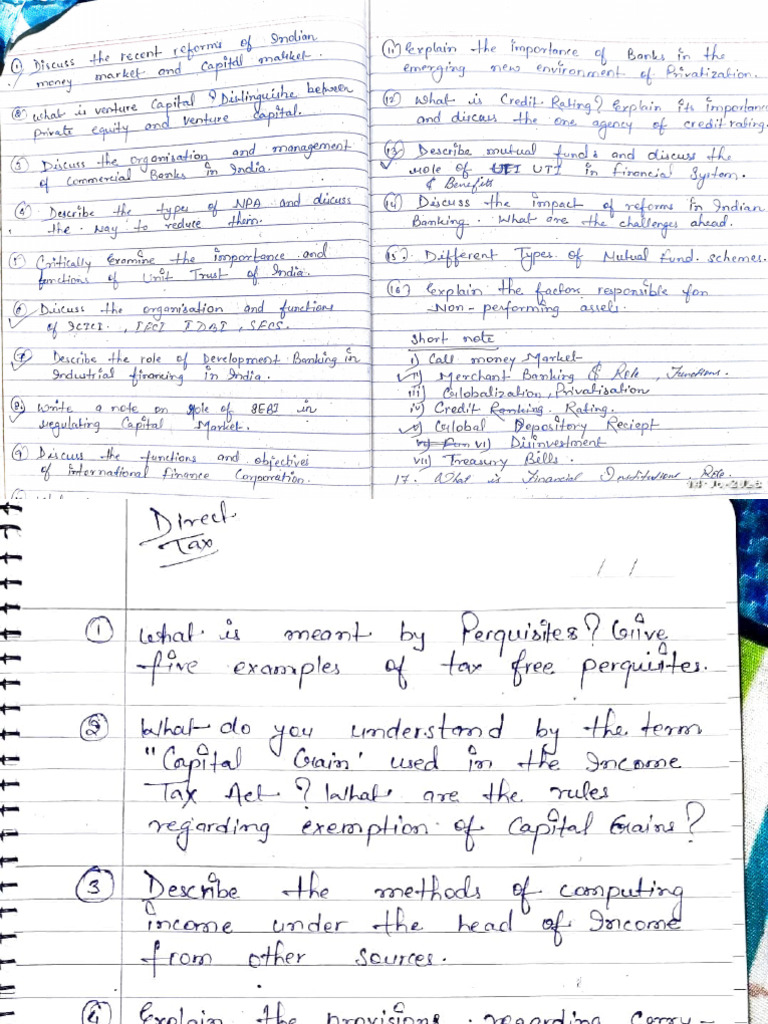 ① Discuss the recent reforms of Indian
money market and Capital market.
② what is venture Capital ? Distinguishe between
private equity and venture capital.
③ Discuss the organisation and management
of commercial Banks in India.
④ Describe the types of NPA and discuss
the way to reduce them.
⑤ Critically Examine the importance and
functions of Unit Trust of India.
⑥ Discuss the organisation and functions
of ICICI., IFCI IDBI, SFCS.
⑦ Describe the role of Development Banking in
Industrial financing in India.
⑧ Write a note on role of SEBI in
regulating Capital Market.
⑨ Discuss the functions and objectives
of international finance Corporation.
⑪ Explain the importance of Banks in the
emerging new environment of Privatization.
⑫ What is Credit Rating? Explain its importance
and discuss the one agency of credit rating.
⑬ Describe mutual funds and discuss the
role of UTI in financial System.
& Benefits
⑭ Discuss the impact of reforms in Indian
Banking. What are the challenges ahead.
⑮ Different Types of Mutual Fund. schemes.
⑯ Explain the factors responsible for
Non-performing assets.
Short note
i) Call money Market
ii) Merchant Banking & Role, Functions.
iii) Globalization, Privatisation
iv) Credit Rating.
v) Global Depository Reciept
vi) Disinvestment
vii) Treasury Bills.
17. What is Financial Institutions, Role.
Direct
Tax
① What is meant by Perquisites? Give
five examples of tax free perquisites.
② What do you understand by the term
"Capital Gain' used in the Income
Tax Act? What are the rules
regarding exemption of Capital Gains?
③ Describe the methods of computing
income under the head of Income
from other sources.
④ Explain the provisions regarding carry-